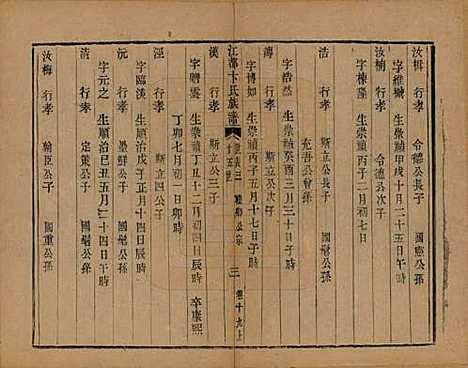 汝楫 行孝 令德公長子 國憲公孫
字維城 生崇禎甲戌十月二十五日午時
汝楠 行孝 令德公次子
字棟隆 生崇禎 年二月初七日
浩 行孝 斯立公長子 國聲公孫
充吾公會孫
字浩然 生崇禎癸酉三月三十日子時
溥 行孝 斯立公次子
字博如 生崇禎丙子五月十七日子時
漢 行孝 斯立公三子
江都卞氏族譜 世表三 十五世 公宗 三 卷十九上
字瞻雲 生崇禎丁丑十二月初四日辰時 卒康熙
丁卯七月初一日卯時
涇 行孝 國聲公孫
字臨溪 生順治戊子正月十四日辰時
沅 行孝 墨鮮公子 國聲公孫
字元之 生順治己丑五月二十四日午時
清 行孝 定策公子 國聲公孫
汝梅 行孝 翰臣公子 國重公孫